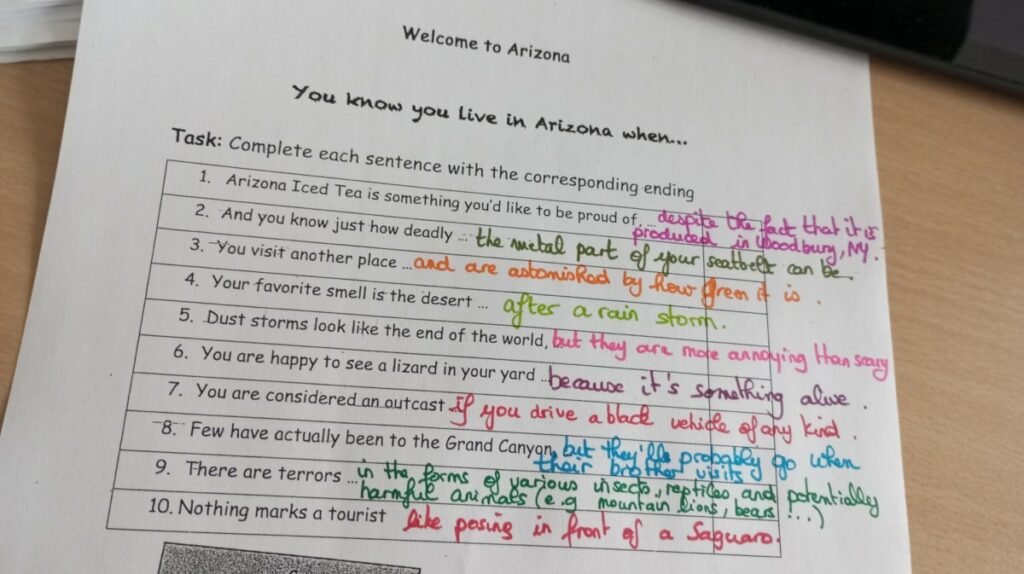 Welcome to Arizona
You know you live in Arizona when...
Task: Complete each sentence with the corresponding ending
1. Arizona Iced Tea is something you'd like to be proud of, ... despite the fact that it is
produced in Woodbury, NY.
2. And you know just how deadly ... the metal part of your seatbelt can be.
3. You visit another place ... and are astonished by how green it is.
4. Your favorite smell is the desert ... after a rain storm.
5. Dust storms look like the end of the world, but they are more annoying than scary
6. You are happy to see a lizard in your yard ... because it's something alive.
7. You are considered an outcast ... if you drive a black vehicle of any kind.
8. Few have actually been to the Grand Canyon, but they'll probably go when
their brother visits
9. There are terrors ... in the forms of various insects, reptiles and potentially
harmful animals (e.g mountain lions, bears ...)
10. Nothing marks a tourist like posing in front of a Saguaro.